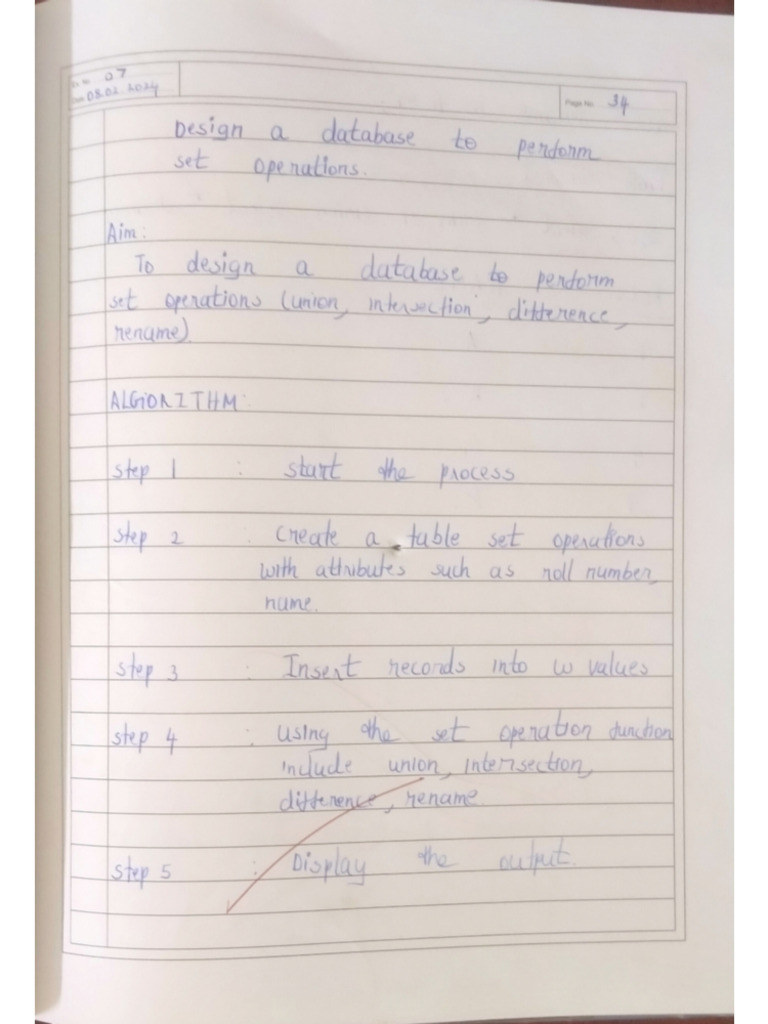 Ex No. 07
Date 08.02.2024
Page No. 34
Design a database to perform
set operations.
Aim:
To design a database to perform
set operations (union, intersection, difference,
rename)
ALGORITHM:
Step 1 : start the process
Step 2 : create a table set operations
with attributes such as roll number,
name.
Step 3 : Insert records into w values
Step 4 : using the set operation function
include union, intersection,
difference, rename.
Step 5 : Display the output.